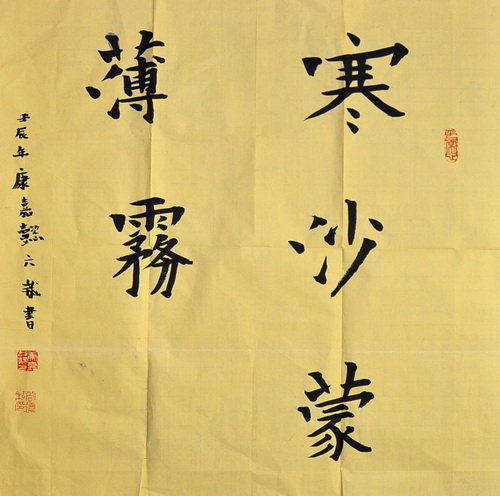 寒沙蒙
薄霧
壬辰年康嘉懿六歲書